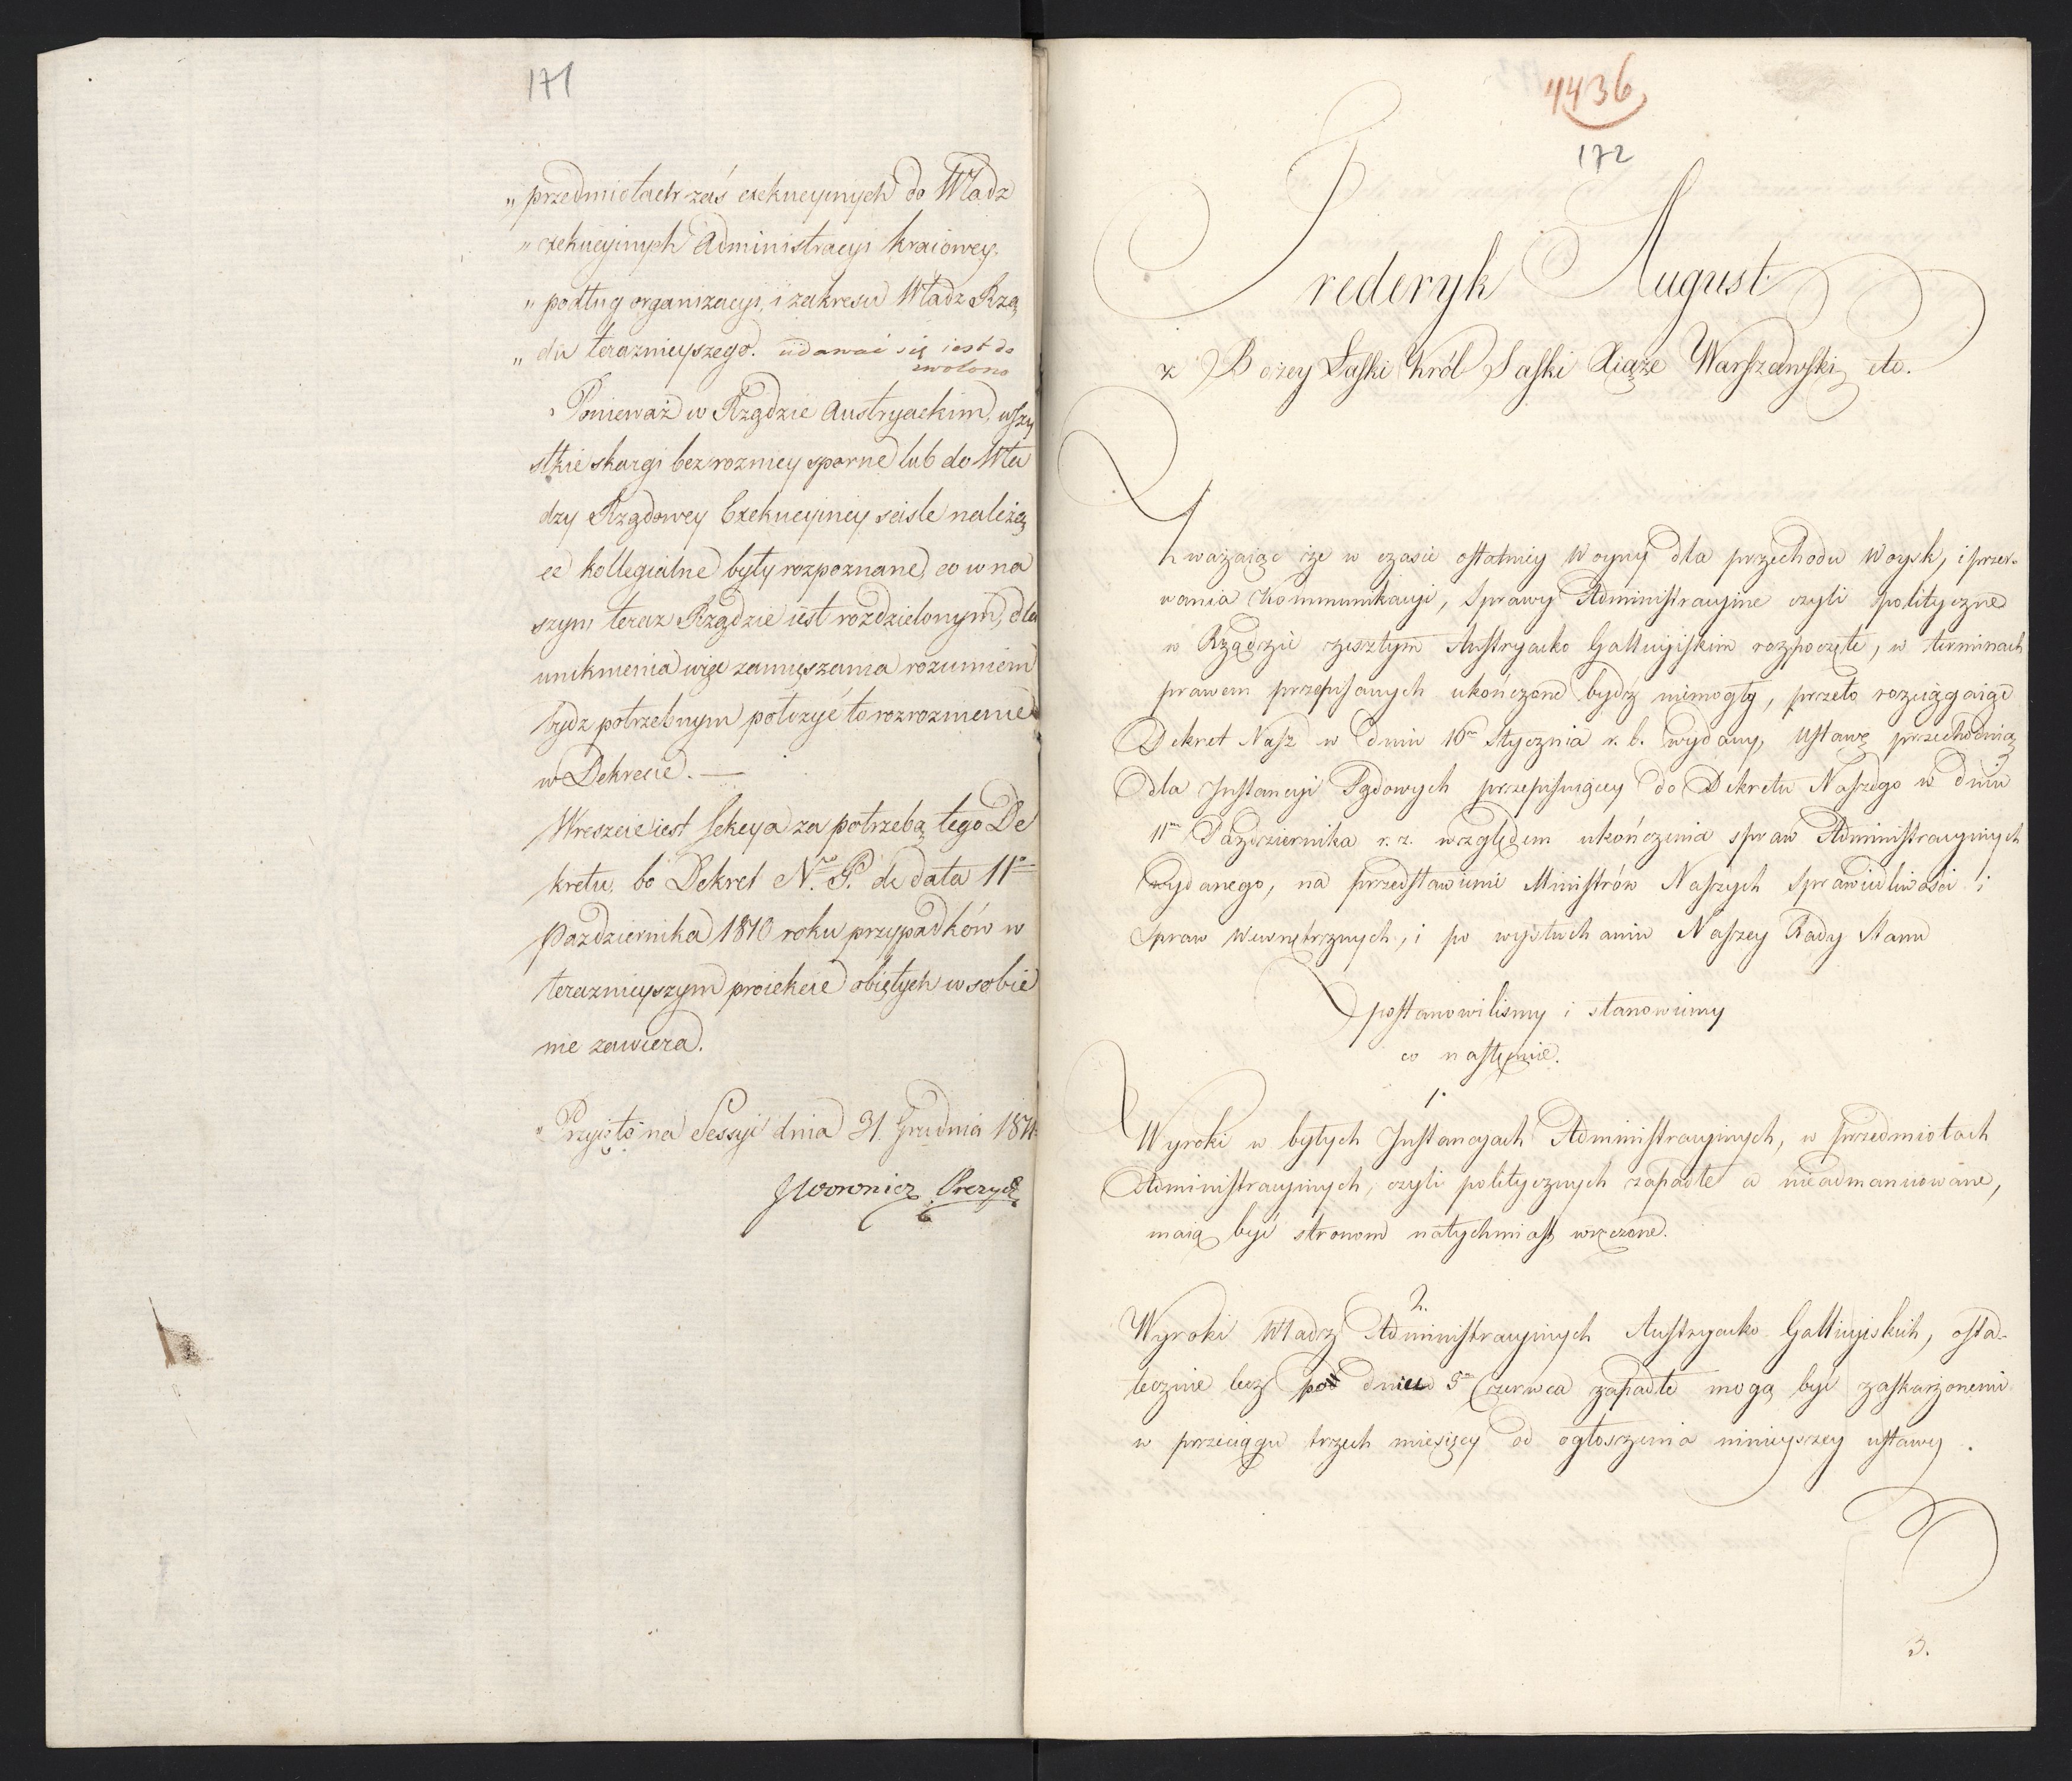 171
„ przedmiotach zaś exekucyinych do Władz
„ exekucyinych Administracyi kraiowey,
„ podług organizacyi, i zakresu Władz Rzą
„ du teraznieyszego. udawać się iest do
zwolono
Ponieważ w Rządzie Austryackim, wszy
stkie skargi bez rozniey sporne lub do Wła
dzy Rządowey Exekucyiney scisle należą
ce kollegialne były rozpoznane, co w na
szym teraz Rządzie iest rozdzielonym, dla
uniknienia więc zamięszania rozumiem
bydz potrzebnym położyć to rozroznienie
w Dekrecie. —
Wreszcie iest Sekcya za potrzebą tego De
kretu, bo Dekret N.ro P. de data 11o
Pazdziernika 1810 roku przypadków w
teraznieyszym proiekcie obiętych w sobie
nie zawiera.
Przyięto na Sessyi dnia 31. Grudnia 1811.
JWoronicz Prezyd.
4436
172
Frederyk August
z Bożey Łaski Król Saski Xiąże Warszawski etc.
Uważaiąc iże w czasie ostatniey Woyny dla przechodu Woysk, i przer-
wania Kommunikacyi, Sprawy Administracyine czyli polityczne
w Rządzie zeszłym Austryacko Gallicyiskim rozpoczęte, w terminach
prawem przepisanych ukończone bydź niemogły, przeto rozciągaiąc
Dekret Nasz w dniu 16m Stycznia r. b. wydany, Ustawę przechodnią
dla Instancyi Sądowych przepisuiący do Dekretu Naszego w dniu
11m Października r. z. względem ukończenia spraw Administracyinych
wydanego, na przedstawienie Ministrów Naszych Sprawiedliwości i
Spraw Wewnętrznych, i po wysłuchaniu Naszey Rady Stanu
postanowilismy i stanowiemy
co następuie.
1.
Wyroki w byłych Instancyach Administracyinych, w przedmiotach
Administracyinych, czyli politycznych zapadłe a nieadmanuowane,
maią być stronom natychmiast wręczone.
2.
Wyroki Władz Administracyinych Austryacko Gallicyiskich, osta-
tecznie lecz po dniu 5m Czerwca zapadłe mogą być zaskarżonemi
w przeciągu trzech miesięcy od ogłoszenia ninieyszey ustawy.
3.